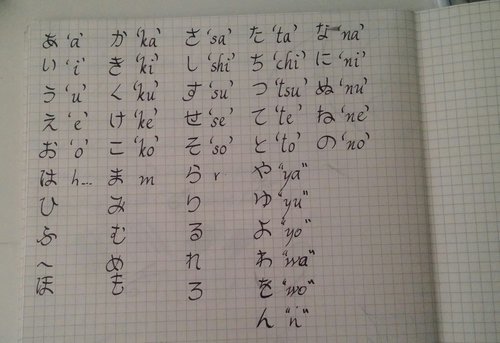 あ 'a' か 'ka' さ 'sa' た 'ta' な 'na'
い 'i' き 'ki' し 'shi' ち 'chi' に 'ni'
う 'u' く 'ku' す 'su' つ 'tsu' ぬ 'nu'
え 'e' け 'ke' せ 'se' て 'te' ね 'ne'
お 'o' こ 'ko' そ 'so' と 'to' の 'no'
は h... ま m ら r や "ya"
ひ み り ゆ "yu"
ふ む る よ "yo"
へ め れ わ "wa"
ほ も ろ を "wo"
ん "n"